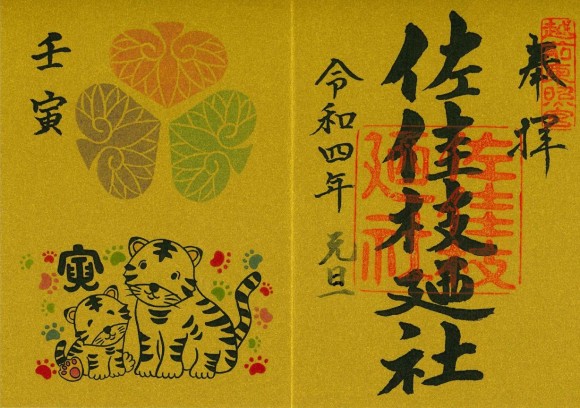 越前東照宮
奉拝
佐佳枝廼社
佐佳枝
廼社
令和四年 元旦
壬寅
寅